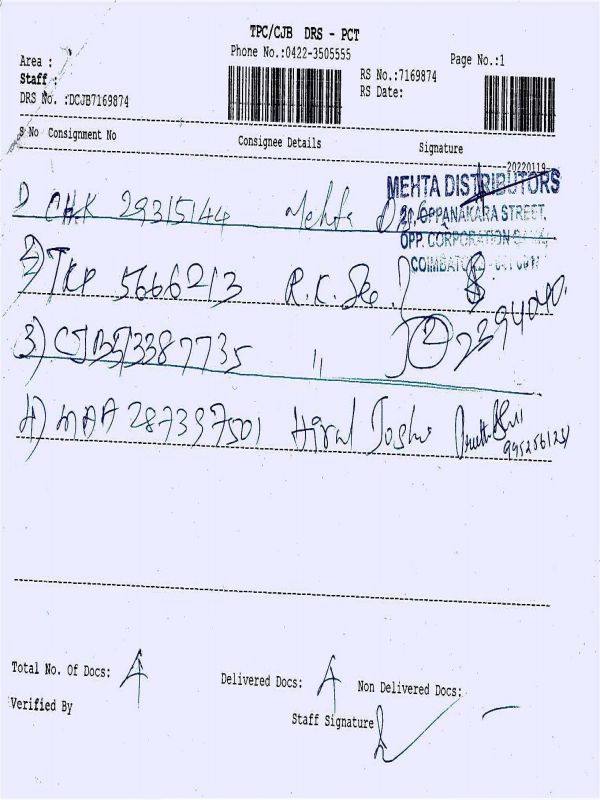 TPC/CJB DRS - PCT
Phone No.:0422-3505555
Page No.:1
Area :
Staff :
RS No.:7169874
DRS No. :DCJB7169874
RS Date:
S No Consignment No Consignee Details Signature
20220119
MEHTA DISTRIBUTORS
1) CHK 29315144 Mehta
OPPANAKARA STREET,
OPP. CORPORATION
2) TKP 5666213 R.K.
3) CJB513387735 " 2 2394040.
4) MAA 287397501 Hiral Joshi
Total No. Of Docs: 4
Delivered Docs: 4 Non Delivered Docs: -
Verified By
Staff Signature